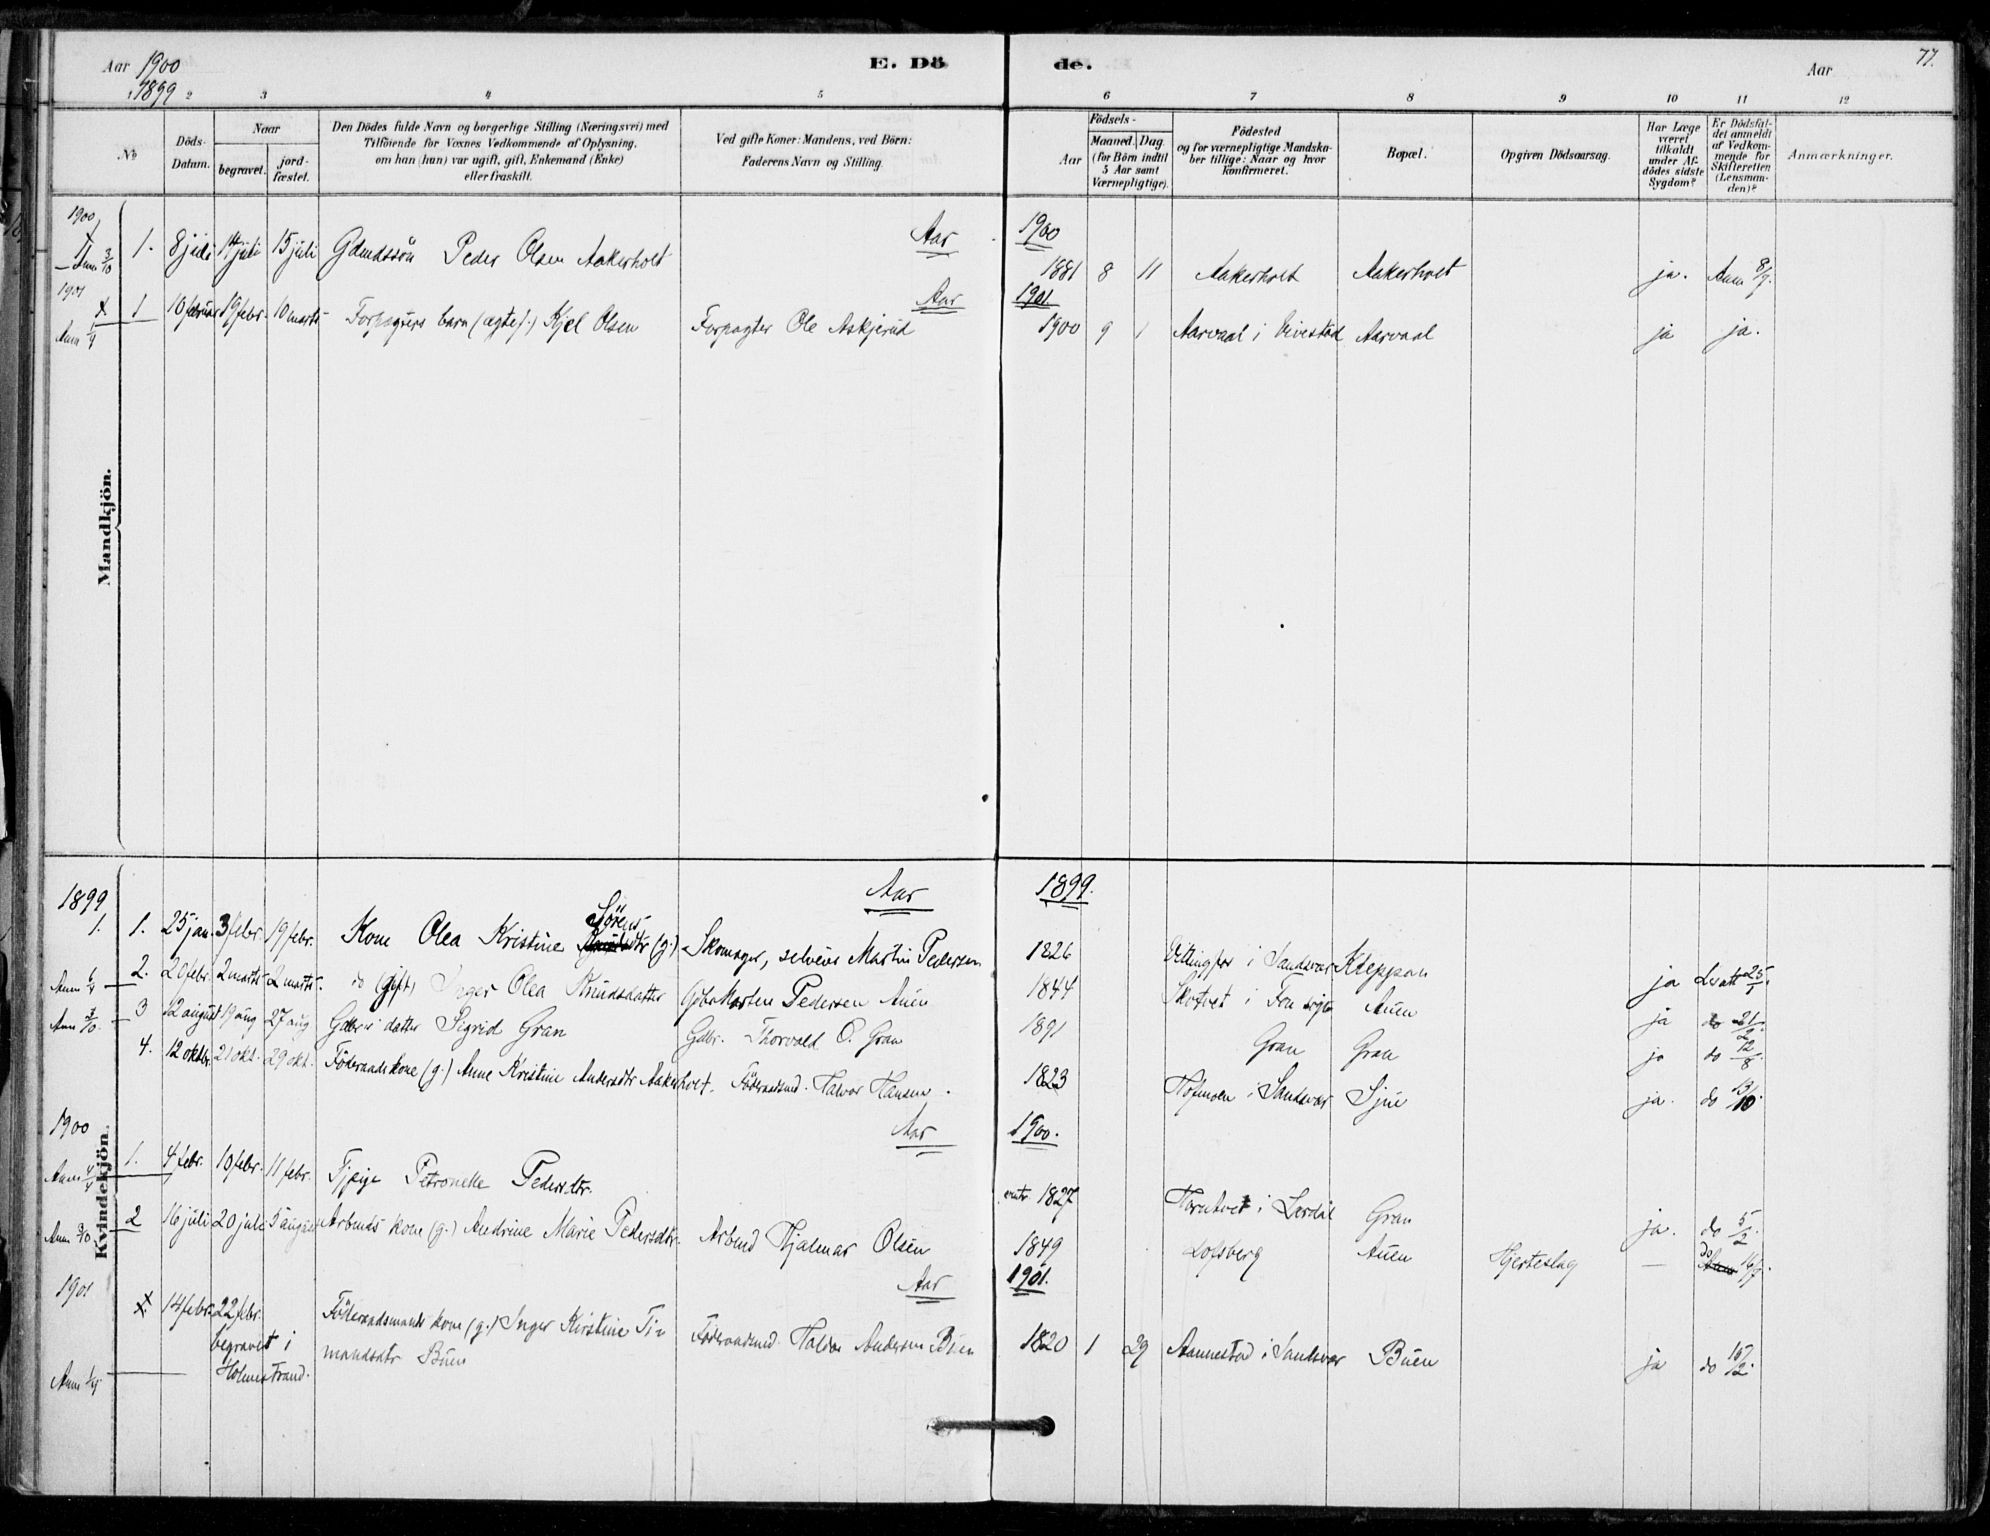 77.
Aar 1900
1899
E. Dö de.
Aar
1 2 3 4 5 6 7 8 9 10 11 12
No
Döds-Datum.
Naar
begravet.
jord-fæstet.
Den Dödes fulde Navn og borgerlige Stilling (Næringsvei) med
Tilföiende for Voxnes Vedkommende af Oplysning,
om han (hun) var ugift, gift, Enkemand (Enke)
eller fraskilt.
Ved gifte Koner: Mandens, ved Börn:
Faderens Navn og Stilling.
Födsels-
Aar
Maaned. Dag
(for Börn indtil
5 Aar samt
Værnepligtige).
Födested
og for værnepligtige Mandska-
ber tillige: Naar og hvor
konfirmeret.
Bopæl.
Opgiven Dödsaarsag.
Har Læge
været
tilkaldt
under Af-
dödes sidste
Sygdom?
Er Dödsfal-
det anmeldt
af Vedkom-
mende for
Skifteretten
(Lensman-
den)?
Anmærkninger.
Mandkjön.
1900
Aar 1900
Anm 3/10 1. 8 juli 14 juli 15 juli Gdmdssön Peder Olsen Aakerholt 1881 8 11 Aakerholt Aakerholt ja. Anm 8/7.
1901
Aar 1901
Anm 1/4 1 10 februar 19 febr. 10 marts Forpagters barn (ægtef.) Kjel Olsen Forpagter Ole Askjerud 1900 9 1 Aarvaal i Vivestad Aarvaal ja ja.
Kvindekjön.
1899
Aar 1899.
1. 1. 25 jan. 3 febr. 19 febr. Kone Olea Kristine Sörensdtr (g.) Skomager, selveier Martin Pedersen 1826 i Sandsvær Kleppan ja 25/1.
Anm 6/4 2. 20 febr. 2 marts 2 marts. do (gift) Inger Olea Knudsdatter Gdbr Morten Pedersen Auen 1844 i Auen ja do 21/2.
Anm 3/10. 3 12 august 19 aug 27 aug Gdbrs datter Sigrid Gran Gdbr. Thorvald O. Gran 1891 Gran Gran ja do 12/8.
4. 12 oktbr. 21 okt. 29 okt. Föderaadskone (g.) Anne Kristine Andersdtr Aakerholt. Föderaadsmd. Halvor Hansen. 1823 Hofmoen i Sandsvær ja. do 13/10.
1900
Aar 1900.
Anm 4/4 1. 4 febr. 10 febr. 11 febr. Petronelle Pedersdtr. 1827 i Gran ja. do 5/2.
Anm 3/10 2 16 juli 20 juli 5 august Arbmds kone (g.) Andrine Marie Pedersdtr. Arbmd Hjalmar Olsen 1849 Lofsberg Auen Hjerteslag — do 16/7.
1901
Aar 1901.
14 febr. 22 febr. Föderaadsmands kone (g.) Inger Kirstine Ti-
begravet i mandsdtr Buen Föderaadsmd. Halvor Andersen Buen 1820 1 29 Aannestad i Sandsvær Buen ja do 15/2.
Anm 1/4 Holmestrand.